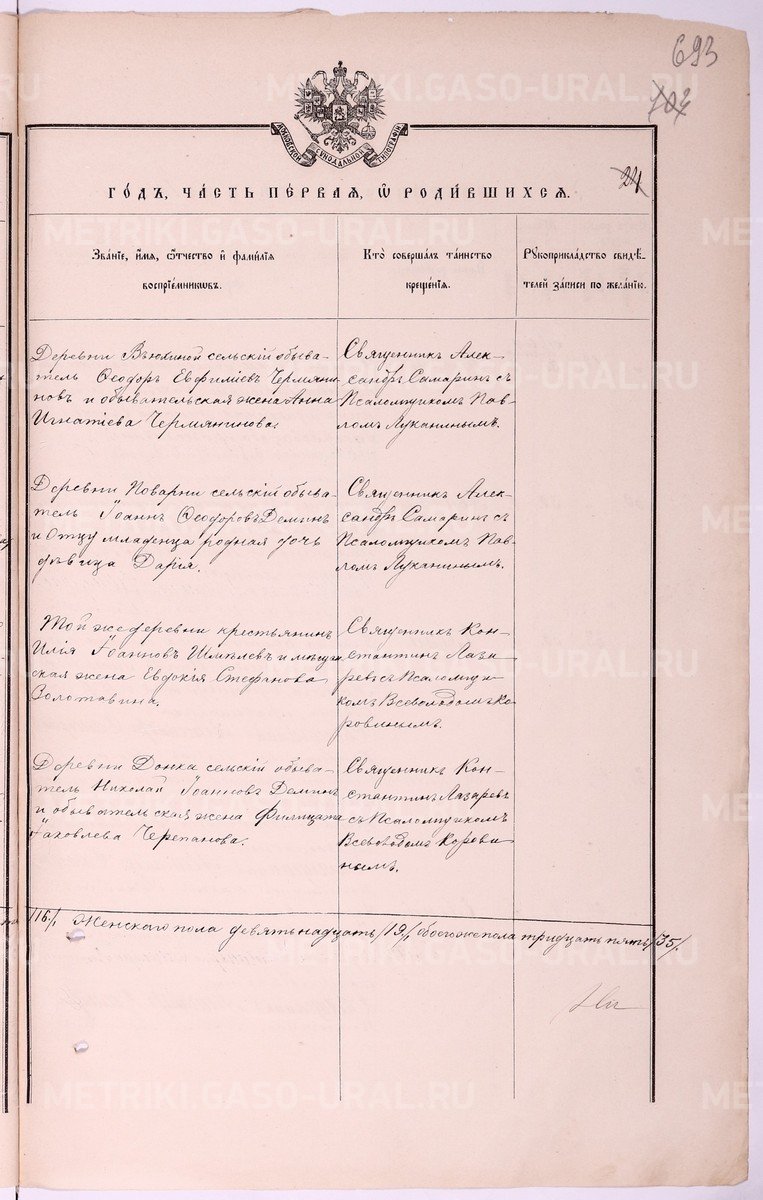 693
104
24
МОСКОВСКОЙ СѴНОДАЛЬНОЙ ТИПОГРАФІИ
ГО́ДЪ, ЧА́СТЬ ПЕ́РВАЯ, Ѡ҆ РОДИ́ВШИХСѦ.
Зва́нїе, и҆́мя, ѻ҆́тчество и҆ фами́лїя
воспрїе́мниковъ.
Кто̀ соверша́лъ та́инство
креще́нїя.
Рꙋкоприкла́дство свидѣ́-
телей за́писи по жела́нїю.
Деревни Вьюхиной сельскій обыва-
тель Ѳеодоръ Евфиміевъ Чермяни-
новъ и обывательская жена Анна
Игнатіева Чермянинова.
Священникъ Алек-
сандръ Самаринъ съ
Псаломщикомъ Пав-
ломъ Луканинымъ.
Деревни Поварни сельскій обыва-
тель Іоаннъ Ѳеодоровъ Деминъ
и Отцу младенца родная дочь
дѣвица Дарія.
Священникъ Алек-
сандръ Самаринъ съ
Псаломщикомъ Пав-
ломъ Луканинымъ.
Той же деревни крестьянинъ
Илія Іоанновъ Шмелевъ и
ская жена Евдокія Стефанова
Золотавина.
Священникъ Кон-
стантинъ Лаза-
ревъ съ Псаломщи-
комъ Всеволодомъ Ко-
ровинымъ.
Деревни Донка сельскій обыва-
тель Николай Іоанновъ Деминъ
и обывательская жена Филицата
Іаковлева Черепанова.
Священникъ Кон-
стантинъ Лазаревъ
съ Псаломщикомъ
Всеволодомъ Корови-
нымъ.
/16/. Женскаго пола девятнадцать /19/, обоего же пола тридцать пять /35/.
METRIKI.GASO-URAL.RU